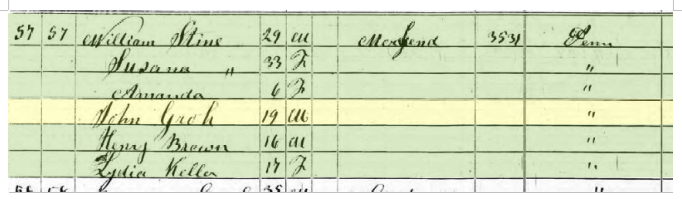 57 57 William Stine 29 M 3531 Penn
Susana " 33 F "
Amanda 6 F "
John Groh 19 M "
Henry Brown 16 M "
Lydia Keller 17 F "
35 M "